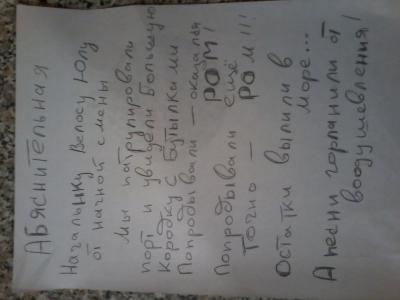 Абяснительная
Начальнку Велосу Юлу
от начной смены
Мы патрулировали
порт и увидели большую
Коробку с Бутылками
Попробывали — оказался
РОМ!
Попробывали ещё
Точно — РОМ!!!
Остатки вылили в
море...
А песни горланили от
воодушевления!